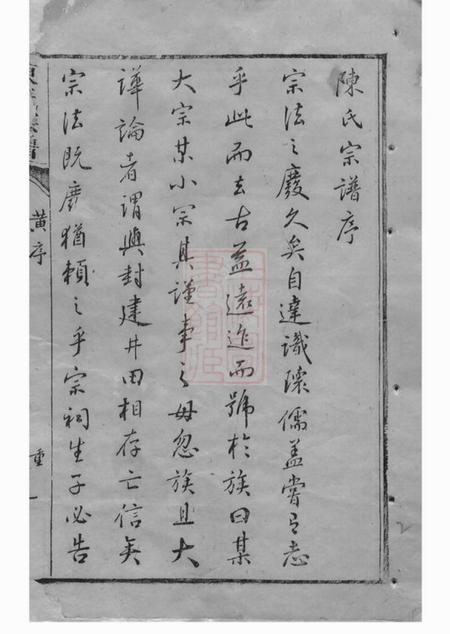 陳氏宗譜序
宗法之廢久矣自達識瓌儒蓋嘗有志
乎此而去古益遠迨而號於族曰某
大宗某小宗其謹事之毋忽族且大
譁論者謂與封建井田相存亡信矣
宗法既廢猶賴之乎宗祠生子必告
黃序
重一
2